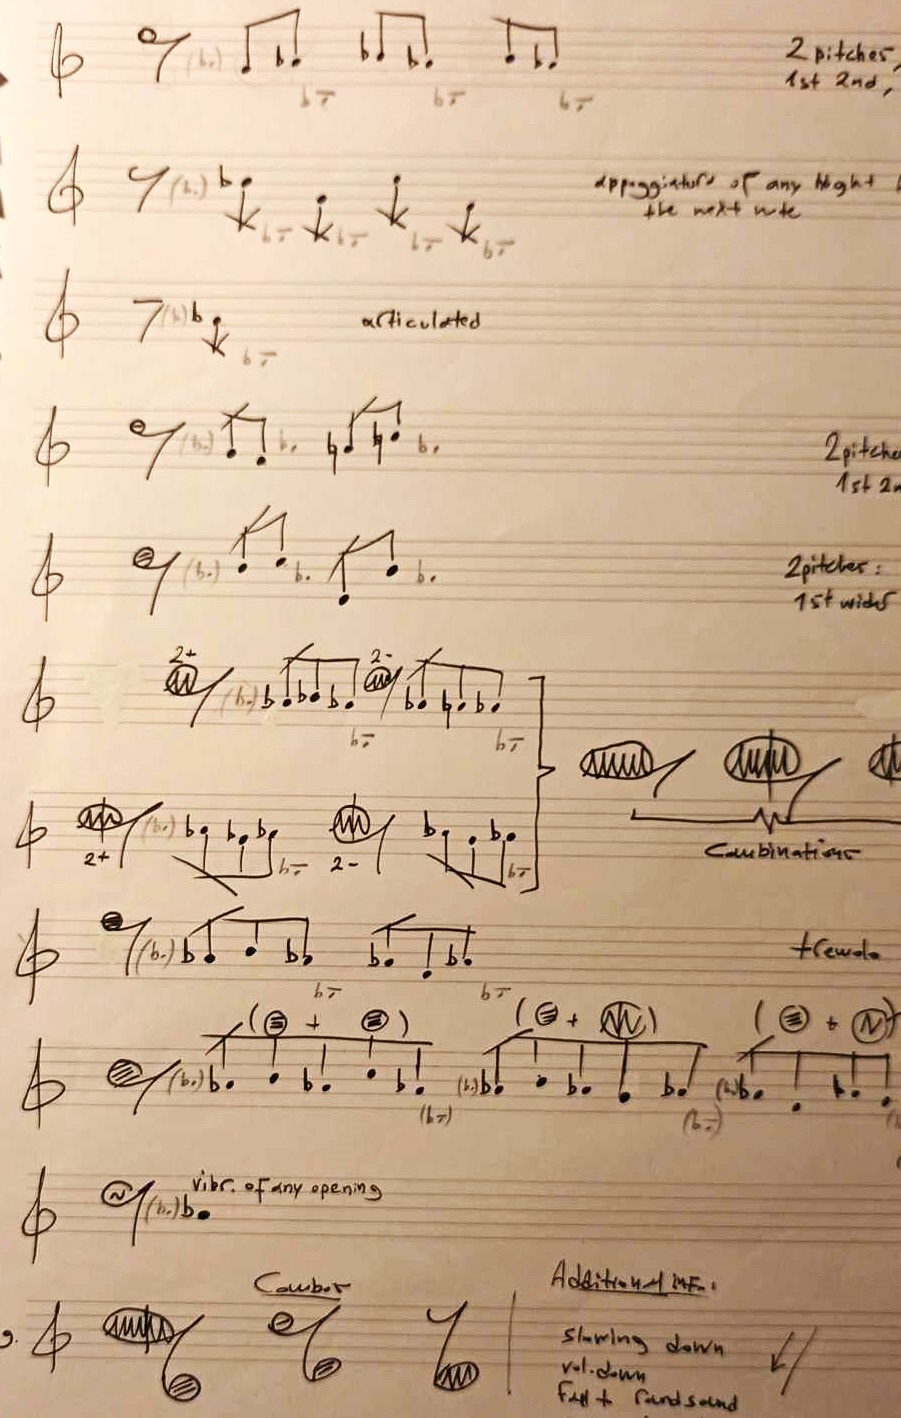 2 pitches,
1st 2nd,
appoggiatura of any hight
the next note
articulated
1st 2n
2 pitches:
1st wider
2+
2-
2+
2-
Combinations
tremolo
( + )
( + )
( +
vibr. of any opening
Combos
Additional inf.:
slowing down
vol. down
round sound